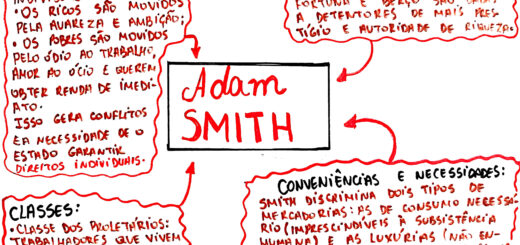 •OS RICOS SÃO MOVIDOS
PELA AVAREZA E AMBIÇÃO;
• OS POBRES SÃO MOVIDOS
PELO ÓDIO AO TRABALHO,
AMOR AO ÓCIO E QUEREM
OBTER RENDA DE IMEDI-
ATO.
ISSO GERA CONFLITOS
E A NECESSIDADE DE O
ESTADO GARANTIR
DIREITOS INDIVIDUAIS.
FORTUNA E BERÇO SÃO
A DETENTORES DE MAIS PRES-
TÍGIO E AUTORIDADE DE RIQUEZA.
Adam
SMITH
CLASSES:
• CLASSE DOS PROLETÁRIOS:
TRABALHADORES QUE VIVEM
CONVENIÊNCIAS E NECESSIDADES:
SMITH DISCRIMINA DOIS TIPOS DE
MERCADORIAS: AS DE CONSUMO NECESSÁ-
RIO (IMPRESCINDÍVEIS À SUBSISTÊNCIA
HUMANA) E AS LUXÚRIAS (NÃO EN-